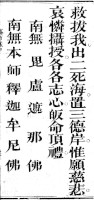 救拔我出二死海置三德岸惟願慈悲
哀憐攝授各各志心皈命頂禮
南無毘盧遮那佛
南無本師釋迦牟尼佛